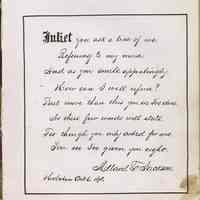 Juliet you ask a line of me.
Refering to my muse.
And as you smile appealingly
How can I well refuse?
But more than this you see I've done
As these few words will state.
For though you only asked for one
I've given you eight.
Oct 6